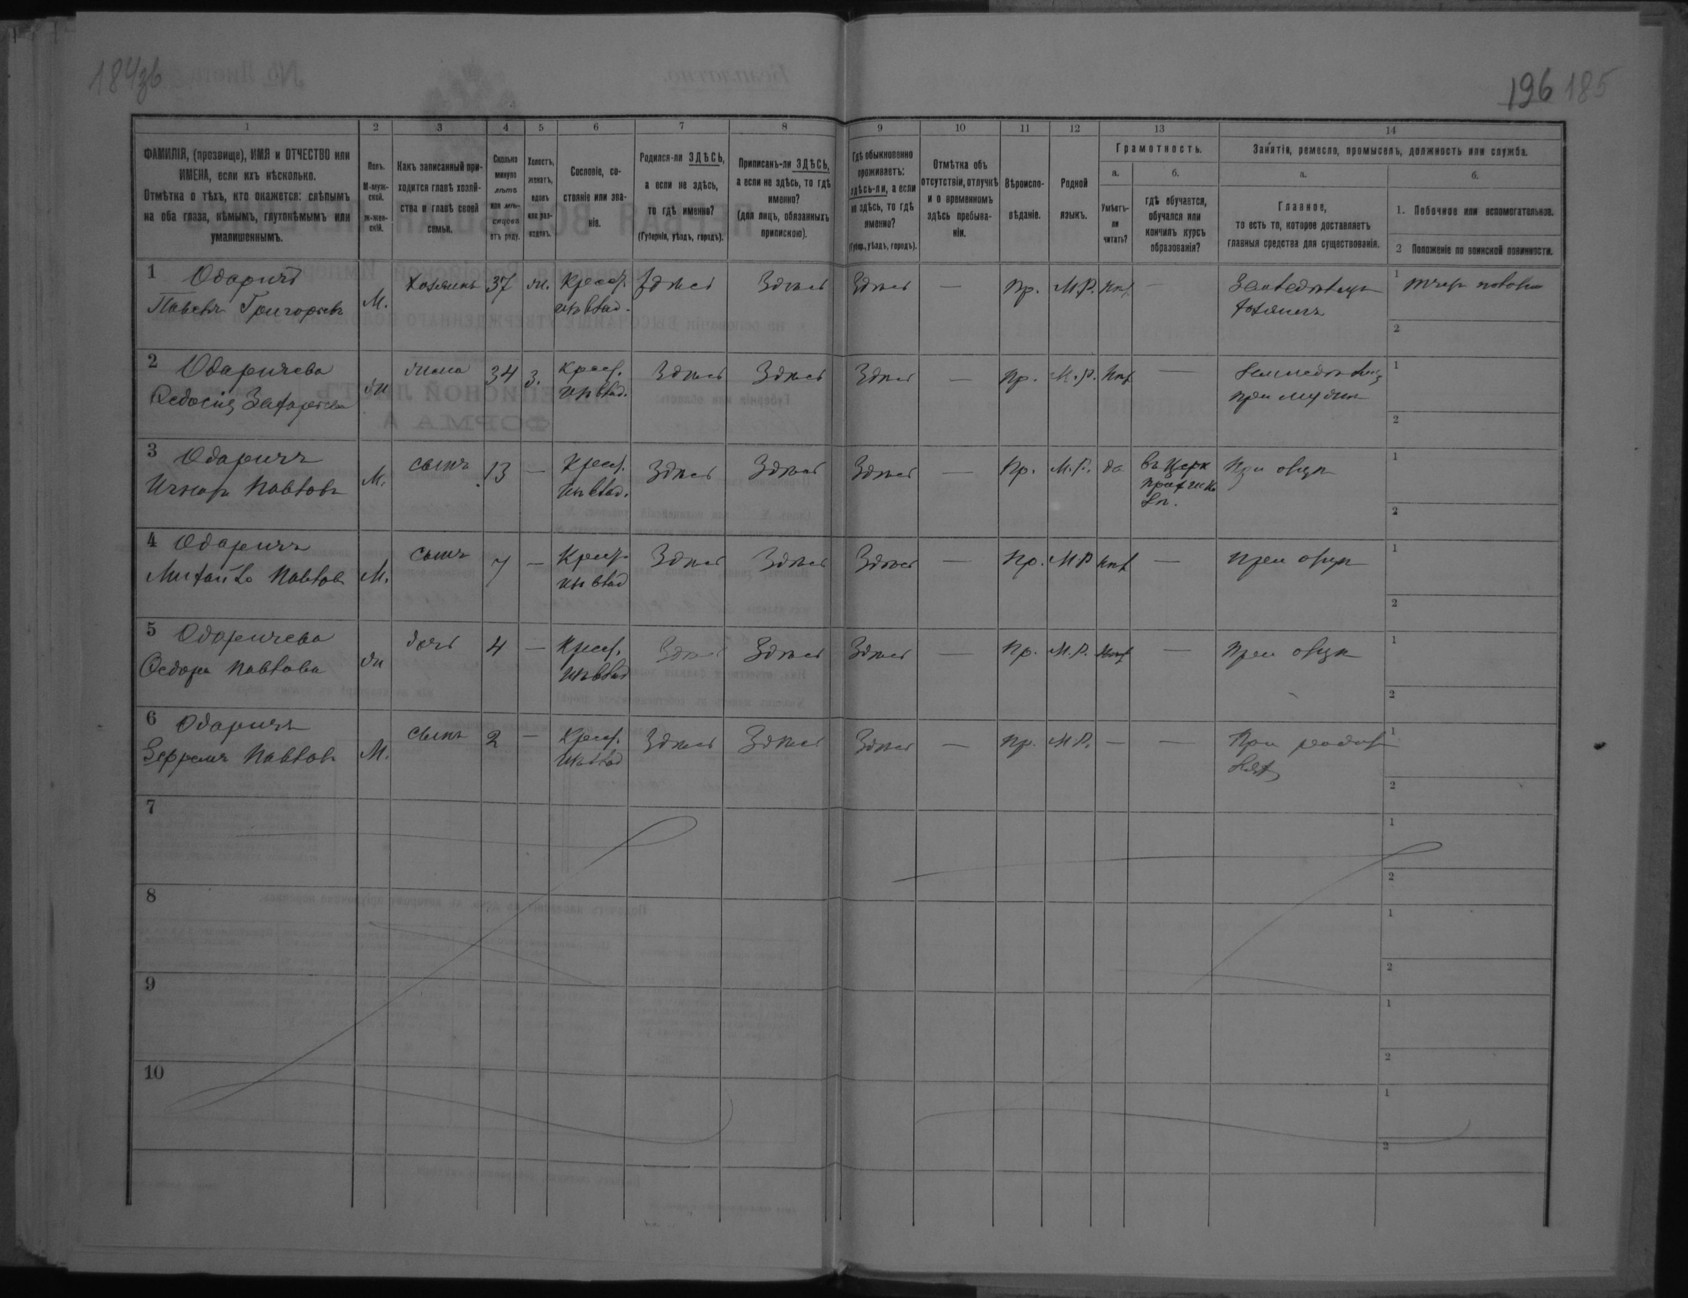 184об
196 185
1 2 3 4 5 6 7 8 9 10 11 12 13 14
ФАМИЛІЯ, (прозвище), ИМЯ и ОТЧЕСТВО или ИМЕНА, если ихъ нѣсколько.
Отмѣтка о тѣхъ, кто окажется: слѣпымъ на оба глаза, нѣмымъ, глухонѣмымъ или умалишеннымъ.
Полъ.
М-мужской.
ж-женскій.
Какъ записанный приходится главѣ хозяйства и главѣ своей семьи.
Сколько минуло лѣтъ или мѣсяцевъ отъ роду.
Холостъ, женатъ, вдовъ или разведенъ.
Сословіе, состояніе или званіе.
Родился-ли ЗДѢСЬ, а если не здѣсь, то гдѣ именно?
(Губернія, уѣздъ, городъ).
Приписанъ-ли ЗДѢСЬ, а если не здѣсь, то гдѣ именно?
(для лицъ, обязанныхъ припискою).
Гдѣ обыкновенно проживаетъ: здѣсь-ли, а если не здѣсь, то гдѣ именно?
(Губер., уѣздъ, городъ).
Отмѣтка объ отсутствіи, отлучкѣ и о временномъ здѣсь пребываніи.
Вѣроисповѣданіе.
Родной языкъ.
Грамотность.
а. Умѣетъ-ли читать?
б. гдѣ обучается, обучался или кончилъ курсъ образованія?
Занятіе, ремесло, промыселъ, должность или служба.
а. Главное,
то есть то, которое доставляетъ главныя средства для существованія.
б.
1. Побочное или вспомогательное.
2 Положеніе по воинской повинности.
1 Одаричъ
Павелъ Григорьевъ М. хозяинъ 37 ж. Крест. Здѣсь Здѣсь Здѣсь — Пр. М.Р. нѣт — Земледѣлецъ хозяинъ
2 Одаричева
Федосія Захарьева ж жена 34 з. Крест. Здѣсь Здѣсь Здѣсь — Пр. М.Р. нѣт — при мужѣ
3 Одаричъ
Игнатъ Павловъ М. сынъ 13 — Крест. Здѣсь Здѣсь Здѣсь — Пр. М.Р. да въ Церк При отцѣ
4 Одаричъ
Михайло Павловъ М. сынъ 7 — Крест. Здѣсь Здѣсь Здѣсь — Пр. М.Р нѣт — При отцѣ
5 Одаричева
Федора Павлова ж дочь 4 — Крест. Здѣсь Здѣсь Здѣсь — Пр. М.Р. нѣт — При отцѣ
6 Одаричъ
Павловъ М. сынъ 2 — Крест. Здѣсь Здѣсь Здѣсь — Пр. М.Р. — — При
7
8
9
10